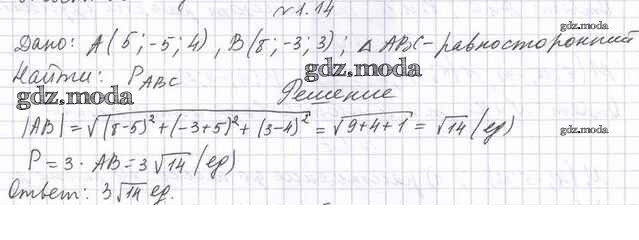 № 1.14
gdz.moda
Дано: A(5; -5; 4), B(8; -3; 3); Δ ABC - равносторонний
Найти: P_ABC
gdz.moda
gdz.moda
Решение
|AB| = √((8-5)² + (-3+5)² + (3-4)²) = √(9+4+1) = √14 (ед)
gdz.moda
P = 3 · AB = 3√14 (ед)
Ответ: 3√14 ед.